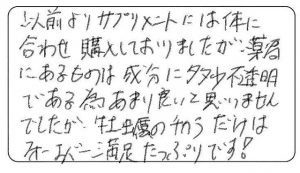 以前よりサプリメントには体に
合わせ購入しておりましたが、薬局
にあるものは成分に 不透明
である為あまり良いと思いません
でしたが、牡蠣のチカラだけは
満足たっぷりです!